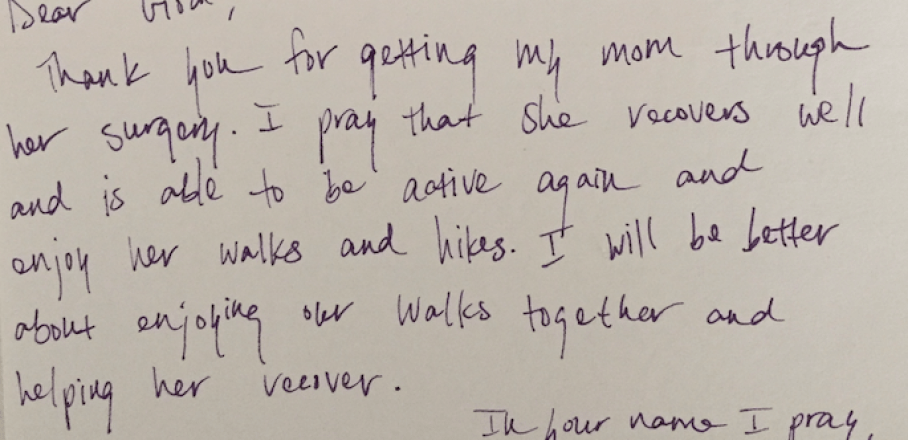 Dear God,
Thank you for getting my mom through
her surgery. I pray that she recovers well
and is able to be active again and
enjoy her walks and hikes. I will be better
about enjoying our walks together and
helping her recover.
In your name I pray,